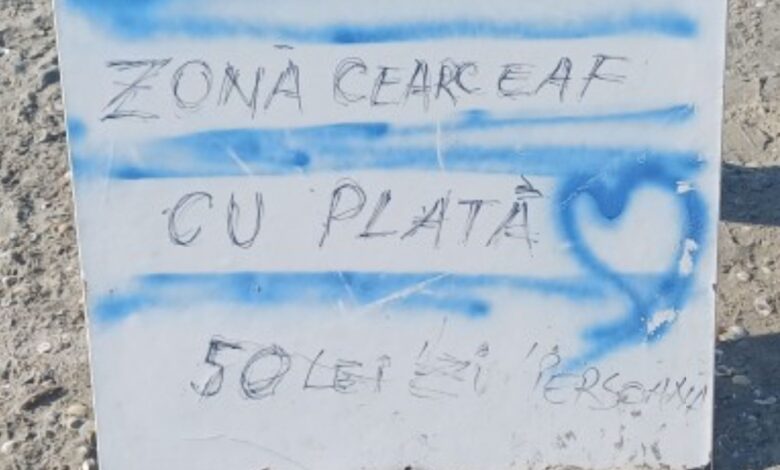 ZONĂ CEARCEAF
CU PLATĂ
50 LEI ZI PERSOANA